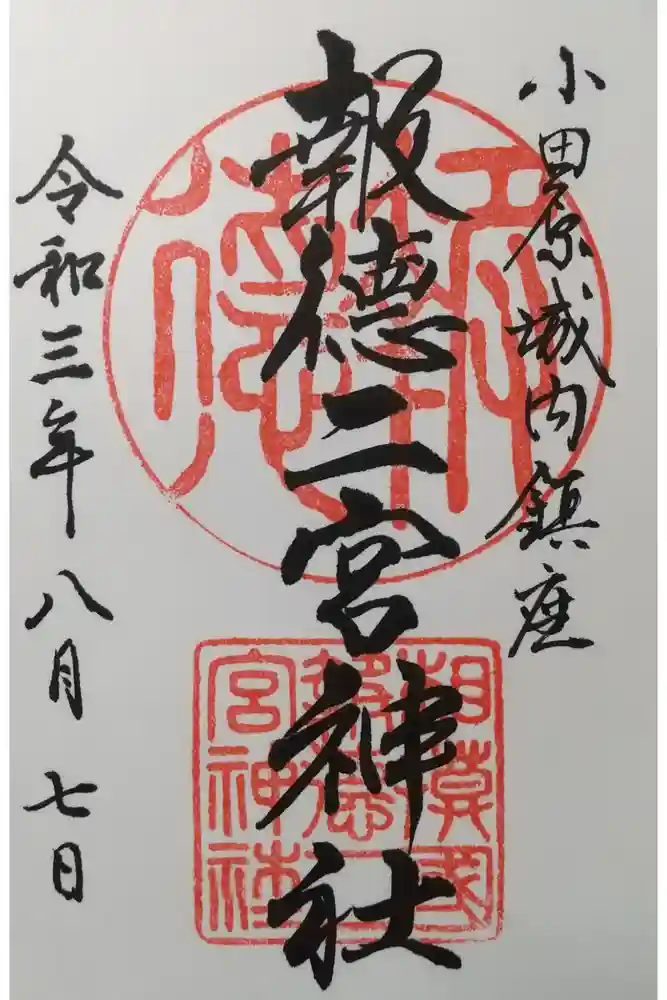 小田原城内鎮座
報徳二宮神社
令和三年八月七日
相模國
報徳二
宮神社